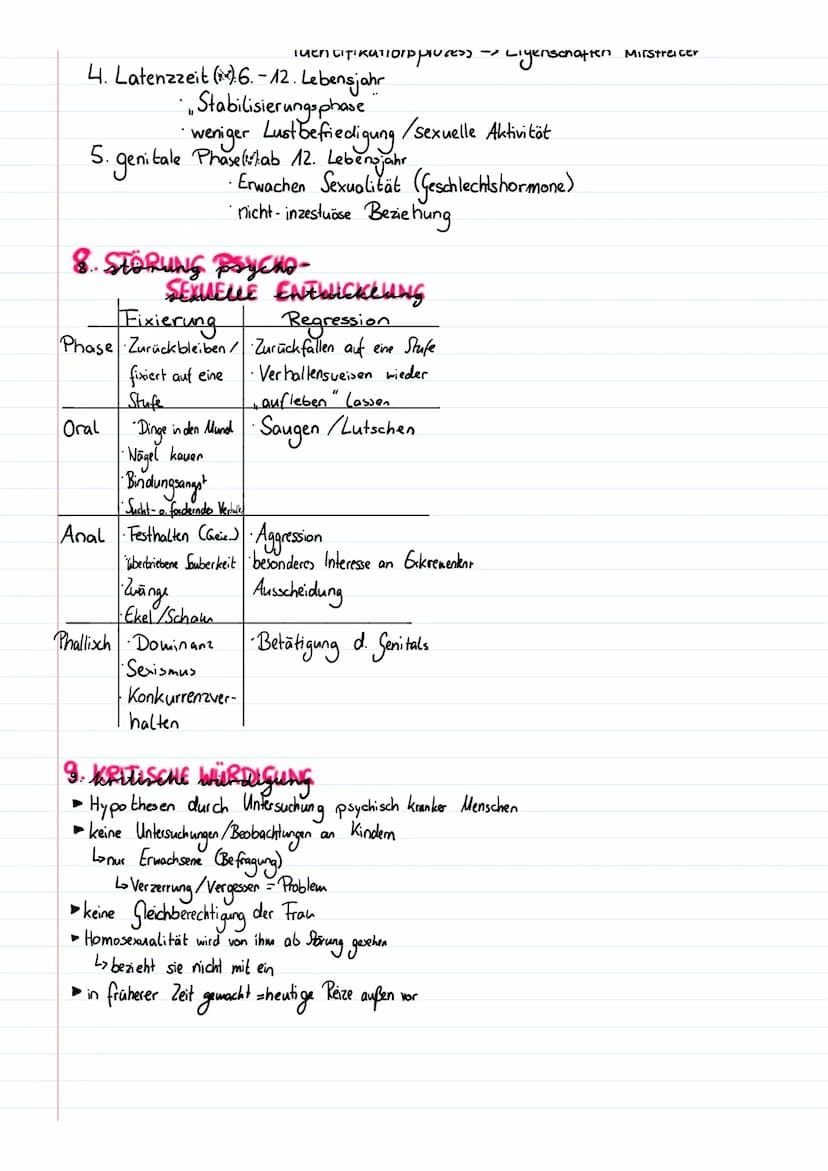 Identifikationsprozess -> Eigenschaften Mitstreiter
4. Latenzzeit 6.-12. Lebensjahr
· „Stabilisierungsphase"
· weniger Lustbefriedigung/sexuelle Aktivität
5. genitale Phase ab 12. Lebensjahr
· Erwachen Sexualität (Geschlechtshormone)
· nicht-inzestuöse Beziehung
8. STÖRUNG PSYCHO-
SEXUELLE ENTWICKLUNG
Fixierung Regression
Phase · Zurückbleiben/ · Zurückfallen auf eine Stufe
fixiert auf eine · Verhaltensweisen wieder
Stufe „aufleben" lassen
Oral · Dinge in den Mund · Saugen/Lutschen
· Nägel kauen
· Bindungsangst
· Sucht- o. forderndes
Anal · Festhalten (Geiz..) · Aggression
· übertriebene Sauberkeit · besonderes Interesse an
· Zwänge Ausscheidung
· Ekel/Scham
Phallisch · Dominanz · Betätigung d. Genitals
· Sexismus
· Konkurrenzver-
halten
9. KRITISCHE WÜRDIGUNG
▸ Hypothesen durch Untersuchung psychisch kranker Menschen
▸ keine Untersuchungen/Beobachtungen an Kindern
↳ nur Erwachsene (Befragung)
↳ Verzerrung/Vergessen = Problem
▸ keine Gleichberechtigung der Frau
▸ Homosexualität wird von ihm als Störung gesehen
↳ bezieht sie nicht mit ein
▸ in früherer Zeit gemacht = heutige Reize außen vor